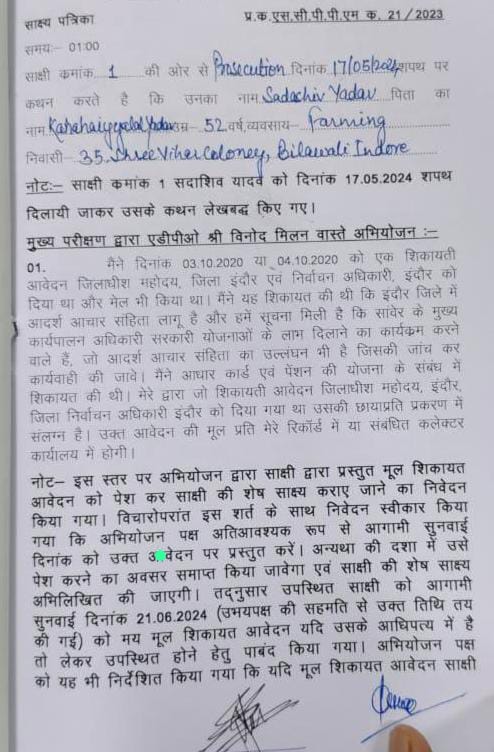 साक्ष्य पत्रिका प्र.क.एस.सी.पी.पी.एम क. 21/2023
समयः– 01:00
साक्षी कमांक 1 की ओर से Prosecution दिनांक 17/05/2024 शपथ पर
कथन करते है कि उनका नाम Sadachiv Yadav पिता का
नाम Kanahaiyyalal Yadav उम्र– 52 वर्ष, व्यवसाय– farming
निवासी– 35 Shree Vihar Coloney, Bilawali Indore
नोटः– साक्षी कमांक 1 सदाशिव यादव को दिनांक 17.05.2024 शपथ
दिलायी जाकर उसके कथन लेखबद्ध किए गए।
मुख्य परीक्षण द्वारा एडीपीओ श्री विनोद मिलन वास्ते अभियोजन :–
01. मैंने दिनांक 03.10.2020 या 04.10.2020 को एक शिकायती
आवेदन जिलाधीश महोदय, जिला इंदौर एवं निर्वाचन अधिकारी, इंदौर को
दिया था और मेल भी किया था। मैंने यह शिकायत की थी कि इंदौर जिले में
आदर्श आचार संहिता लागू है और हमें सूचना मिली है कि सांवेर के मुख्य
कार्यपालन अधिकारी सरकारी योजनाओं के लाभ दिलाने का कार्यक्रम करने
वाले हैं, जो आदर्श आचार संहिता का उल्लंघन भी है जिसकी जांच कर
कार्यवाही की जावे। मैंने आधार कार्ड एवं पेंशन की योजना के संबंध में
शिकायत की थी। मेरे द्वारा जो शिकायती आवेदन जिलाधीश महोदय, इंदौर,
जिला निर्वाचन अधिकारी इंदौर को दिया गया था उसकी छायाप्रति प्रकरण में
संलग्न है। उक्त आवेदन की मूल प्रति मेरे रिकॉर्ड में या संबधित कलेक्टर
कार्यालय में होगी।
नोट– इस स्तर पर अभियोजन द्वारा साक्षी द्वारा प्रस्तुत मूल शिकायत
आवेदन को पेश कर साक्षी की शेष साक्ष्य कराए जाने का निवेदन
किया गया। विचारोपरांत इस शर्त के साथ निवेदन स्वीकार किया
गया कि अभियोजन पक्ष अतिआवश्यक रूप से आगामी सुनवाई
दिनांक को उक्त आवेदन पर प्रस्तुत करें। अन्यथा की दशा में उसे
पेश करने का अवसर समाप्त किया जावेगा एवं साक्षी की शेष साक्ष्य
अभिलिखित की जाएगी। तद्नुसार उपस्थित साक्षी को आगामी
सुनवाई दिनांक 21.06.2024 (उभयपक्ष की सहमति से उक्त तिथि तय
की गई) को मय मूल शिकायत आवेदन यदि उसके आधिपत्य में है
तो लेकर उपस्थित होने हेतु पाबंद किया गया। अभियोजन पक्ष
को यह भी निर्देशित किया गया कि यदि मूल शिकायत आवेदन साक्षी